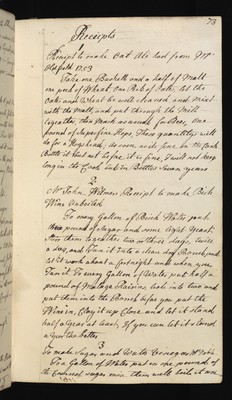 73
Receipts
Receipt to make Oat Ale had from Mr
Take one Bushell and a half of Malt
one peck of Wheat, One Peck of Oats, let the
Oats and Wheat be well cleaned and mixt
with the Malt and put through the Mill
together, then Mash as usual for Beer, One
pound of Superfine Hops. These quantitys will
do for a Hogshead, as soon as its fine in the Cask
Bottle it but not before it is fine, I will not keep
long in the Cask but in Bottles Seven years
2
Mr John Receipt to make Birch
Wine
To every Gallon of Birch Water put
pound of Sugar and some Light Yeast.
Stir them together two or three days, twice
a day, and Tun it into a clean dry Barrel, and
let it work about a fortnight and when you
Tun it To every Gallon of Water put half a
pound of Malaga Raisins cut into two and
put them into the Barrel before you put the
Wine in, Clay it up Close and let it stand
half a year at least, If you can let it stand
a year the better
3
To make Sugar and Water Vinegar
To a Gallon of Water put one pound of
the Coarsest sugar mix them well, boil it one